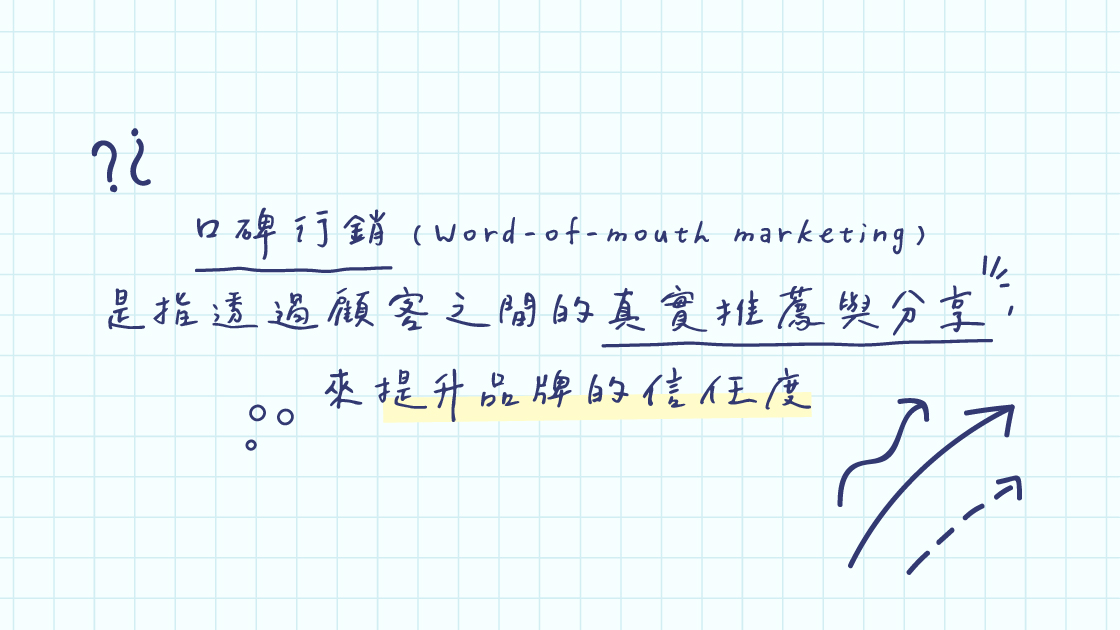 口碑行銷（Word-of-mouth marketing）
是指透過顧客之間的真實推薦與分享
來提升品牌的信任度